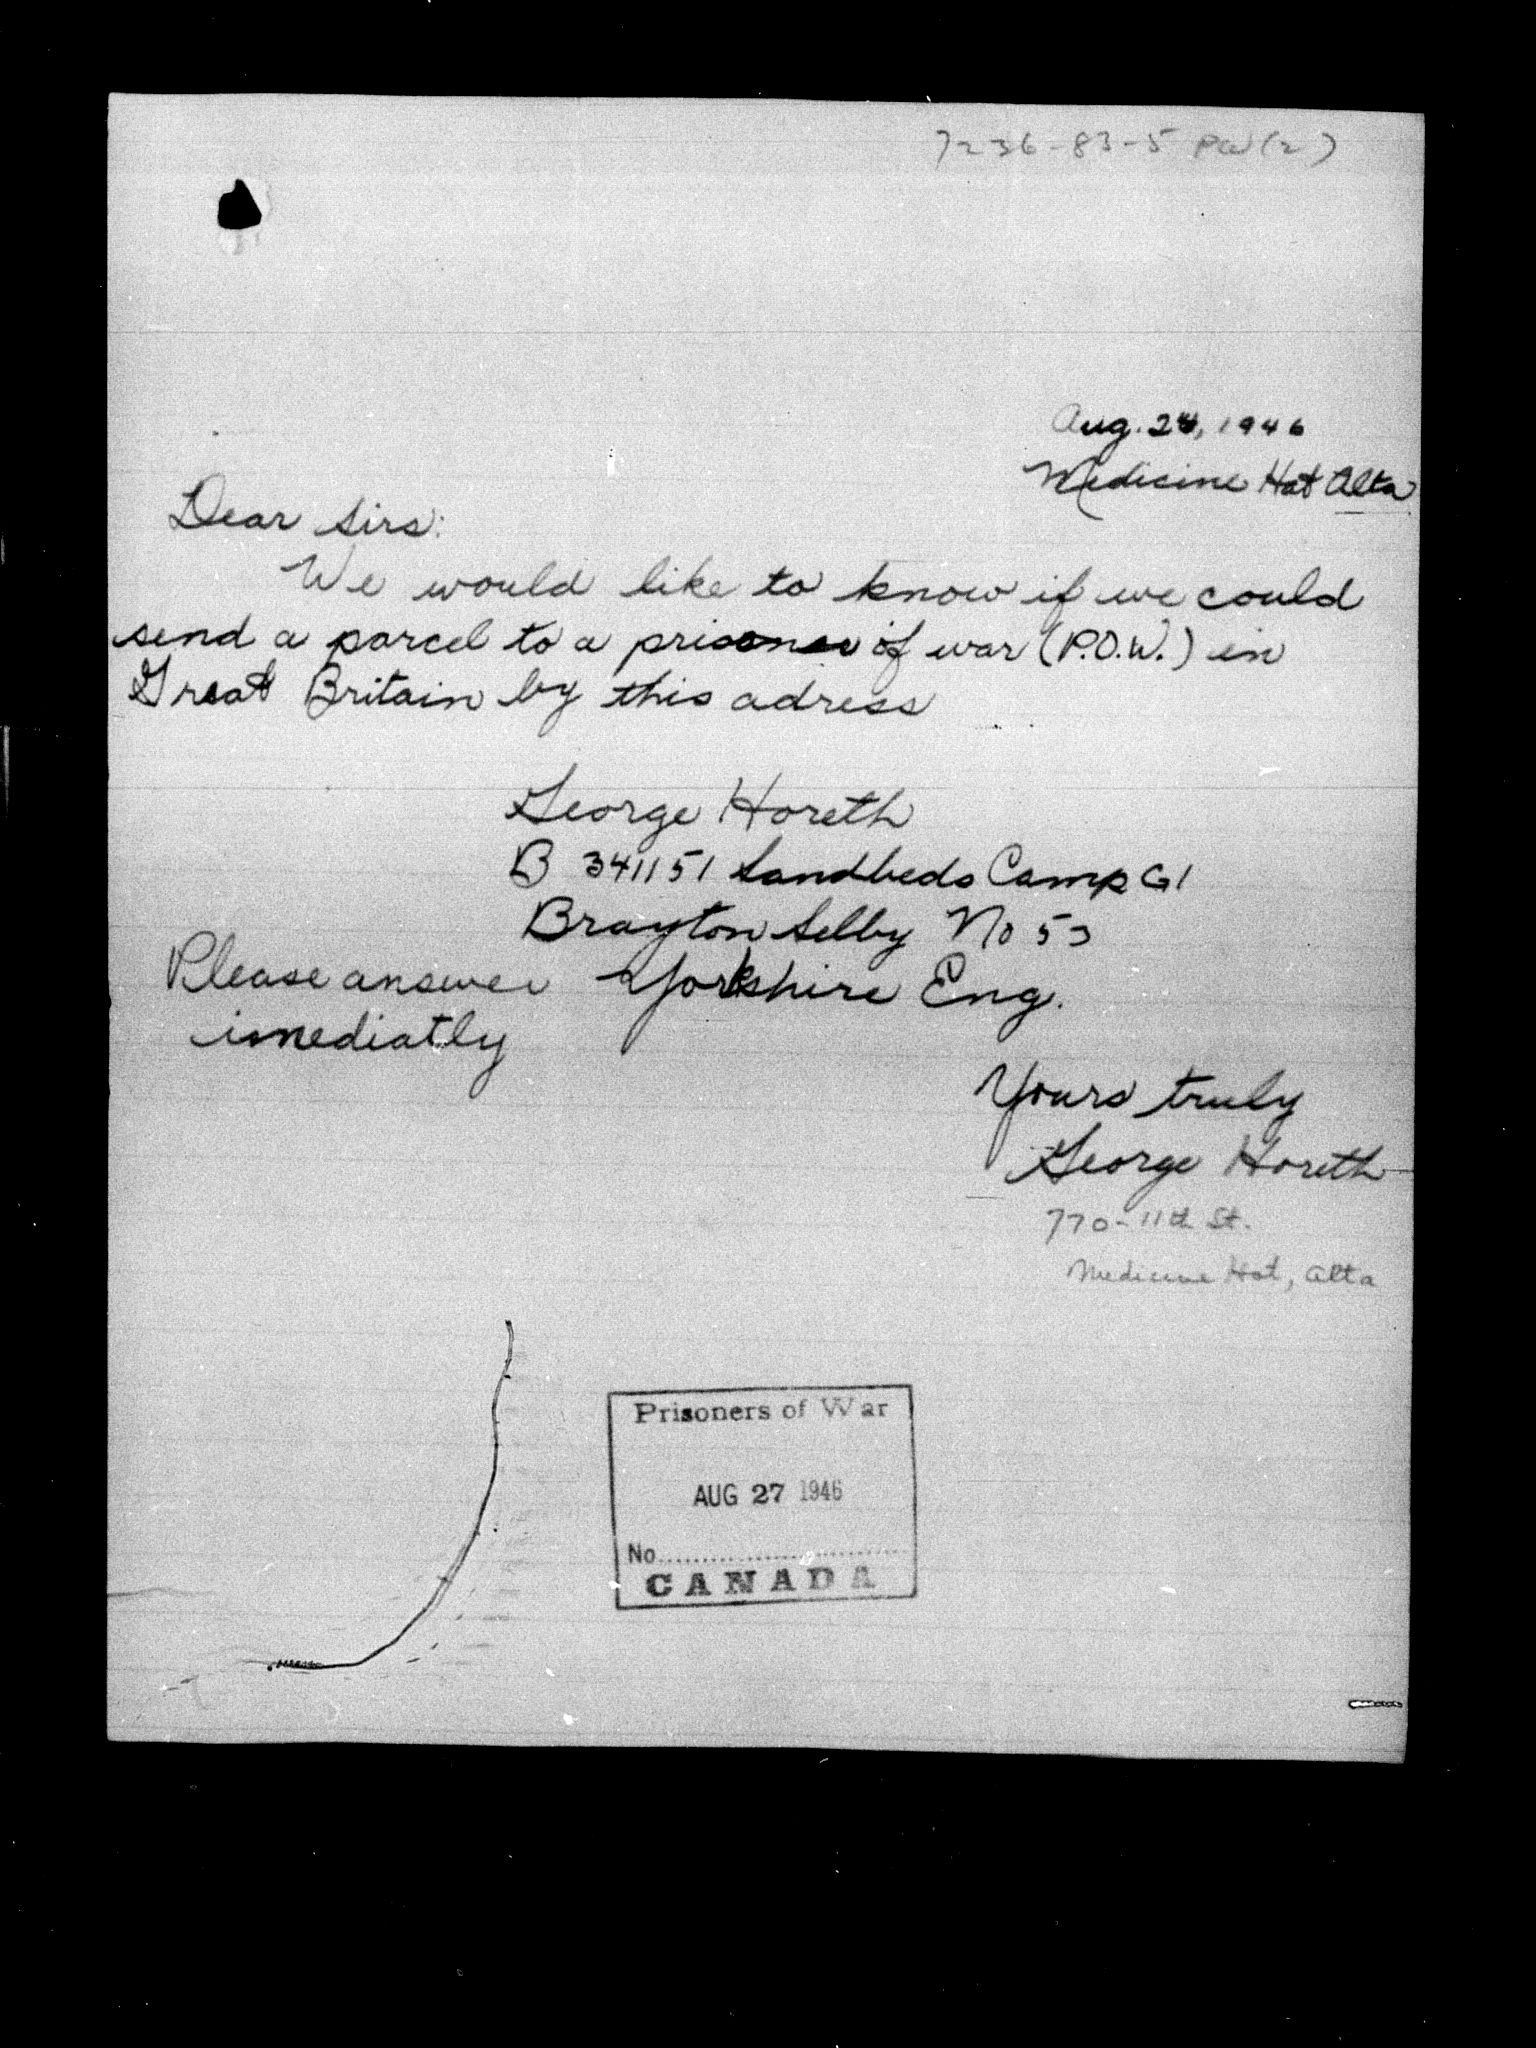 7236-83-5 PW(2)
Aug. 24, 1946
Medicine Hat Alta
Dear Sirs:
We would like to know if we could
send a parcel to a prisoner of war (P.O.W.) in
Great Britain by this adress
George Horeth
B 341151 Sandbeds Camp G1
Brayton Selby No 53
Please answer Yorkshire Eng.
imediatly
Yours truly
George Horeth
770-11th St.
Medicine Hat, Alta
Prisoners of War
AUG 27 1946
No..............................
CANADA